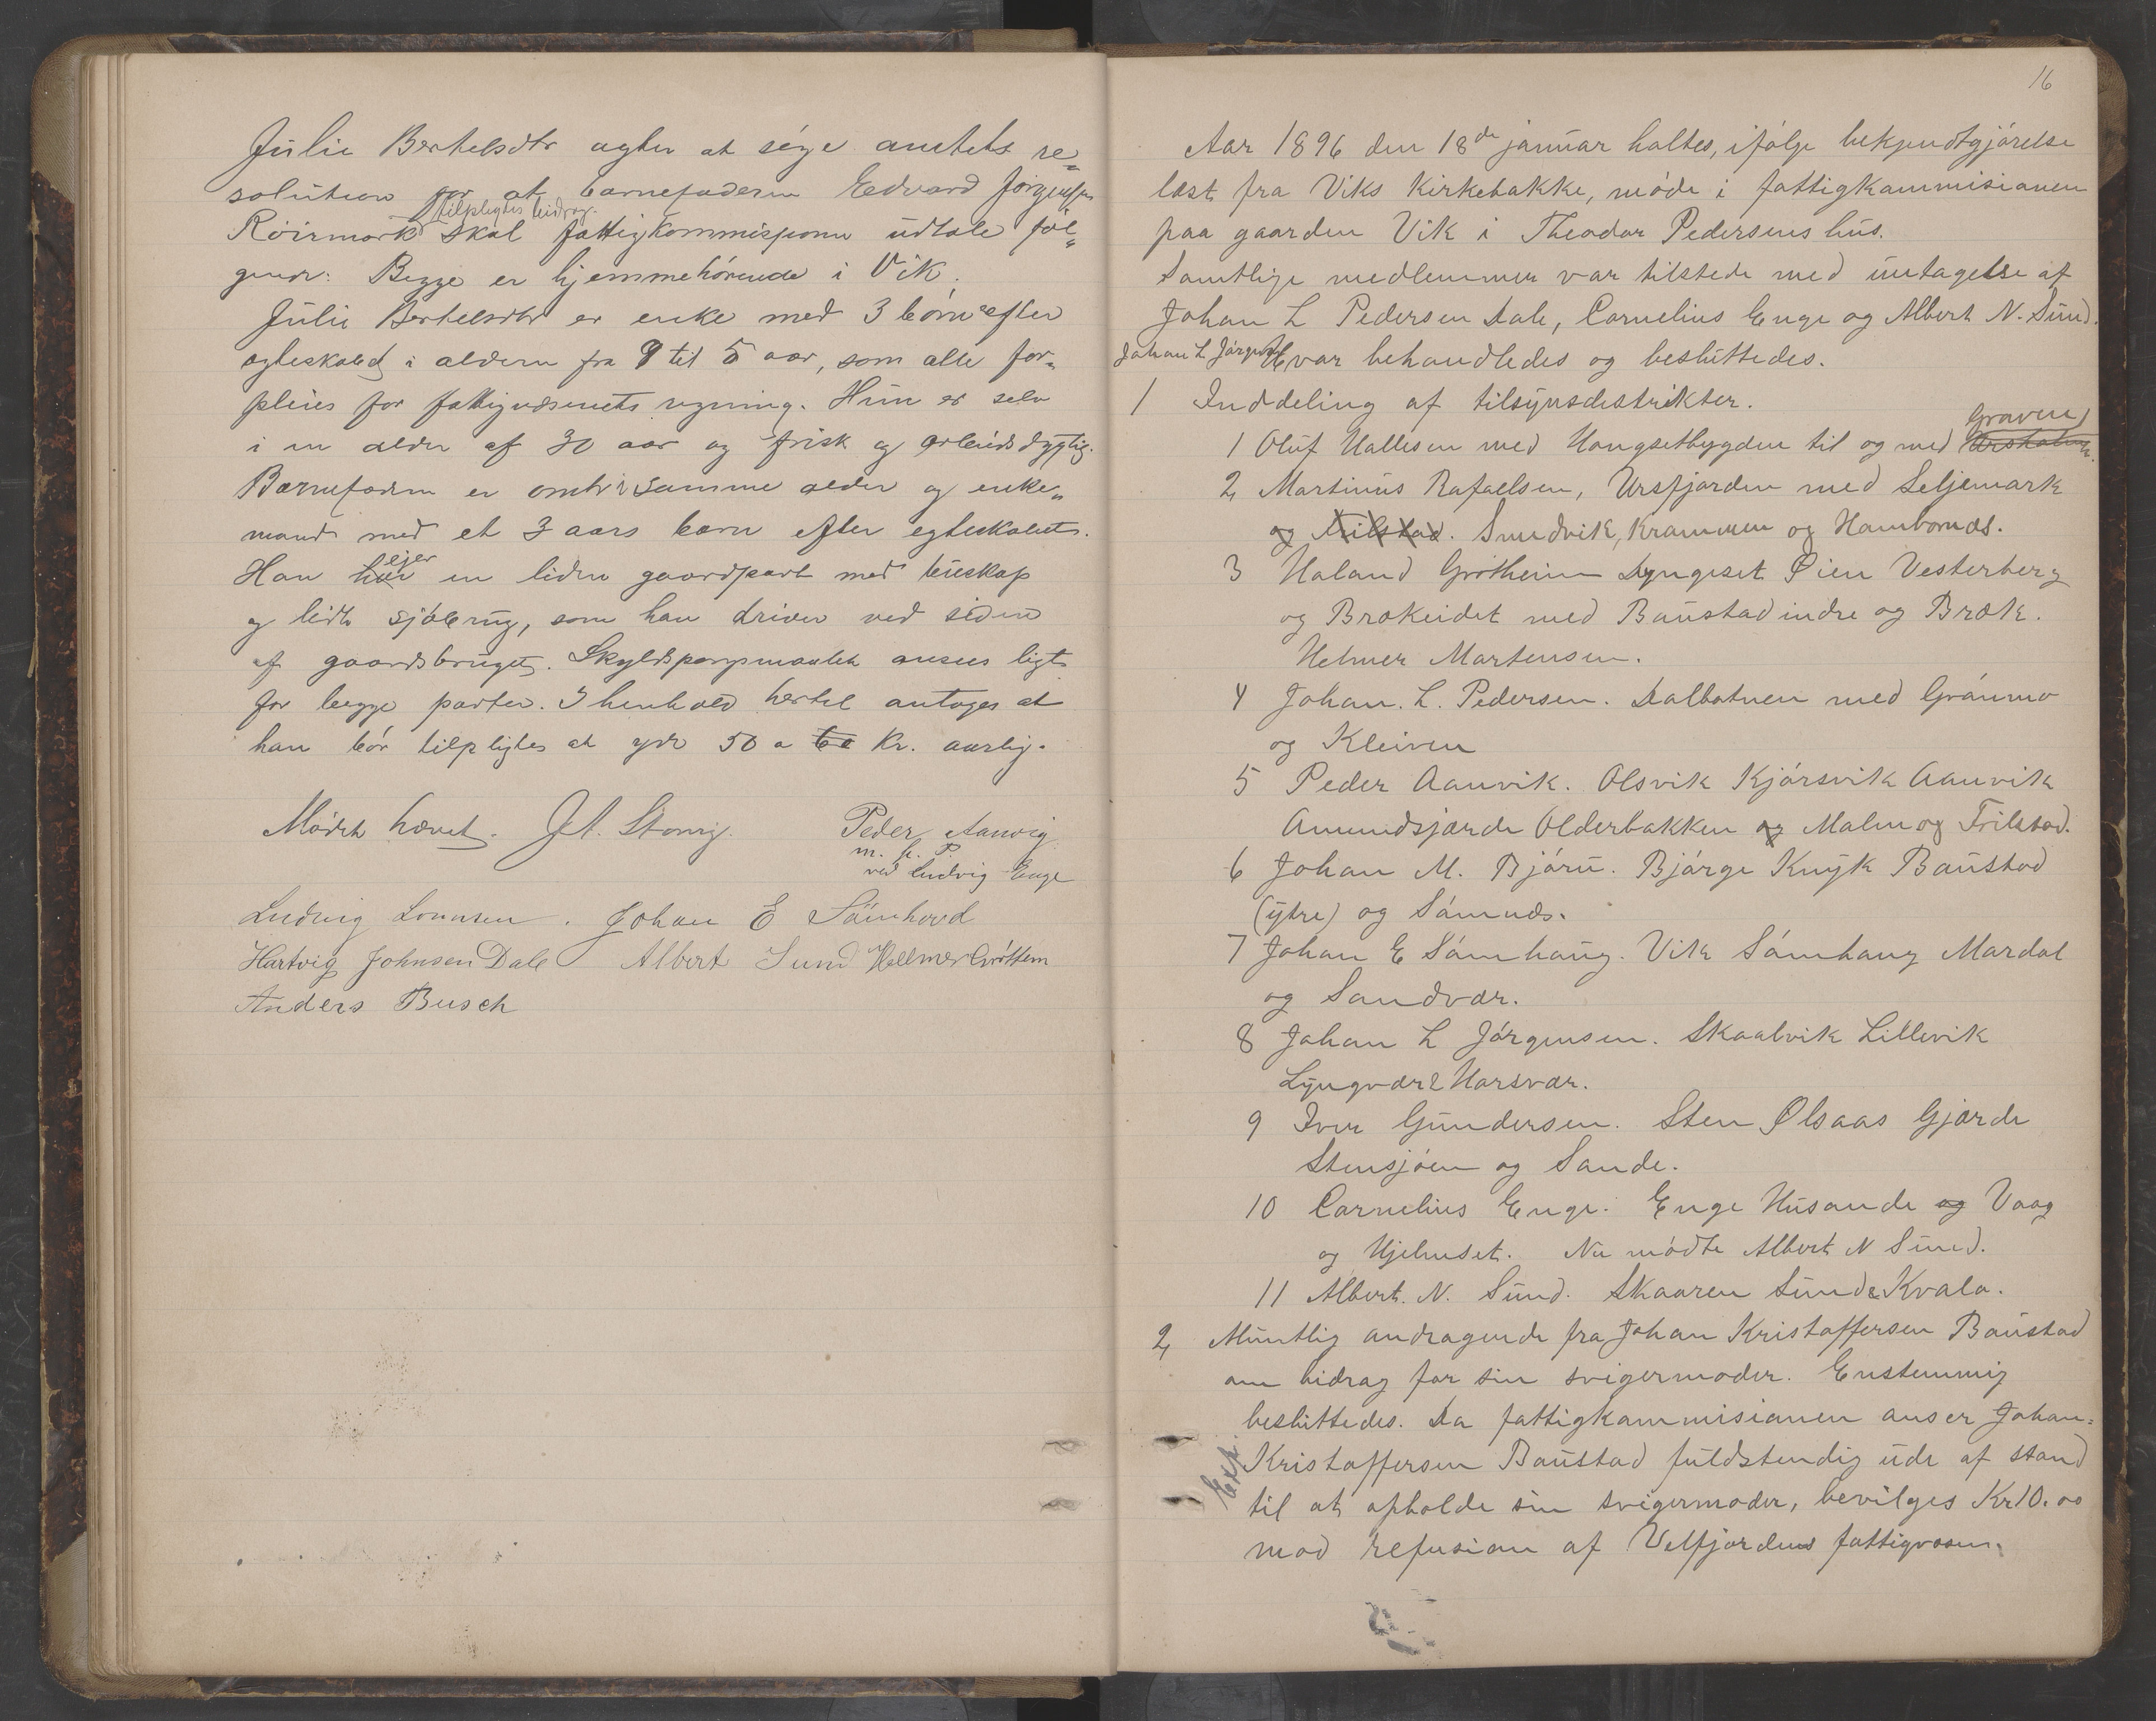 Julie Bertelsdtr agter at søge amtets re-
solution for at barnefaderen Edvard Jørgensen
tilpligtes bidrag.
Röirmark skal fattigkommisjonen udtale föl-
gende: Begge er hjemmehörende i Vik.
Julie Bertelsdtr er enke med 3 börn efter
egteskabet i alderen fra 9 til 5 aar, som alle for-
pleies for fattigvæsenets regning. Hun er selv
i en alder af 30 aar og frisk og arbeidsdygtig.
Barnefaderen er omtr i samme alder og enke-
mand med et 3 aars barn efter egteskabet.
ejer
Han har en liden gaardpart med buskap
og lidt sjöbrug, som han driver ved siden
af gaardsbruget. Skyldspørsmaalet ansees ligt
for begge parter. I henhold hertil antoges at
han bör tilpligtes at yde 50 a 60 Kr. aarlig.
Mödet hævet. J. A. Storvig. Peder Aanvig
m. p. P.
ved Ludvig Enge
Ludvig Lornsen. Johan E Sömhovd
Hartvig Johnsen Dale Albert Sund Helmer Gröttem
Anders Busch
16
Aar 1896 den 18de januar holtes, ifölge bekjendtgjörelse
læst fra Viks Kirkebakke, möde i fattigkommisionen
paa gaarden Vik i Theodor Pedersens hus.
Samtlige medlemmer var tilstede med untagelse af
Johan L Pedersen Dale, Cornelius Enge og Albert N. Sund.
Johan L Jörgensen
Hvor behandledes og besluttedes.
1 Inddeling af tilsynsdistrikter.
Graven
1 Oluf Hallesen med Hongsetbygden til og med
2 Martinus Rafaelsen, Ursfjorden med Seljemark
og Trilstad. Smedvik, Krammen og Hambornæs.
3 Haland Grötheim Lyngset Øien Vesterberg
og Brækeidet med Baustad indre og Bræk.
Helmer Martensen.
4 Johan. L. Pedersen. Dalbotnen med Grönmo
og Kleiven
5 Peder Aanvik. Olsvik Kjörsvik Aanvik
Amundsjorde Olderbakken og Malm og Trilstad.
6 Johan M. Björu. Bjørge Knyk Baustad
(ytre) og Sömnes.
7 Johan E Sömhaug. Vik Sömhaug Mardal
og Sandvær.
8 Johan L Jörgensen. Skaalvik Lillevik
Lyngvær & Horsvær.
9 Iver Gundersen. Sten Ølsaas Gjærde
Stensjöen og Sande.
10 Cornelius Enge. Enge Husande og Vaag
og Hjelmset. Nu mödte Albert N Sund.
11 Albert. N. Sund. Skaaren Sund & Kvalø.
2 Muntlig andragende fra Johan Kristoffersen Baustad
om bidrag for sin svigermoder. Enstemmig
besluttedes. Da fattigkommisionen anser Johan
Exp.
Kristoffersen Baustad fuldstendig ude af stand
til at opholde sin svigermoder, bevilges Kr 10.00
mod refusion af Velfjordens fattigvæsen.